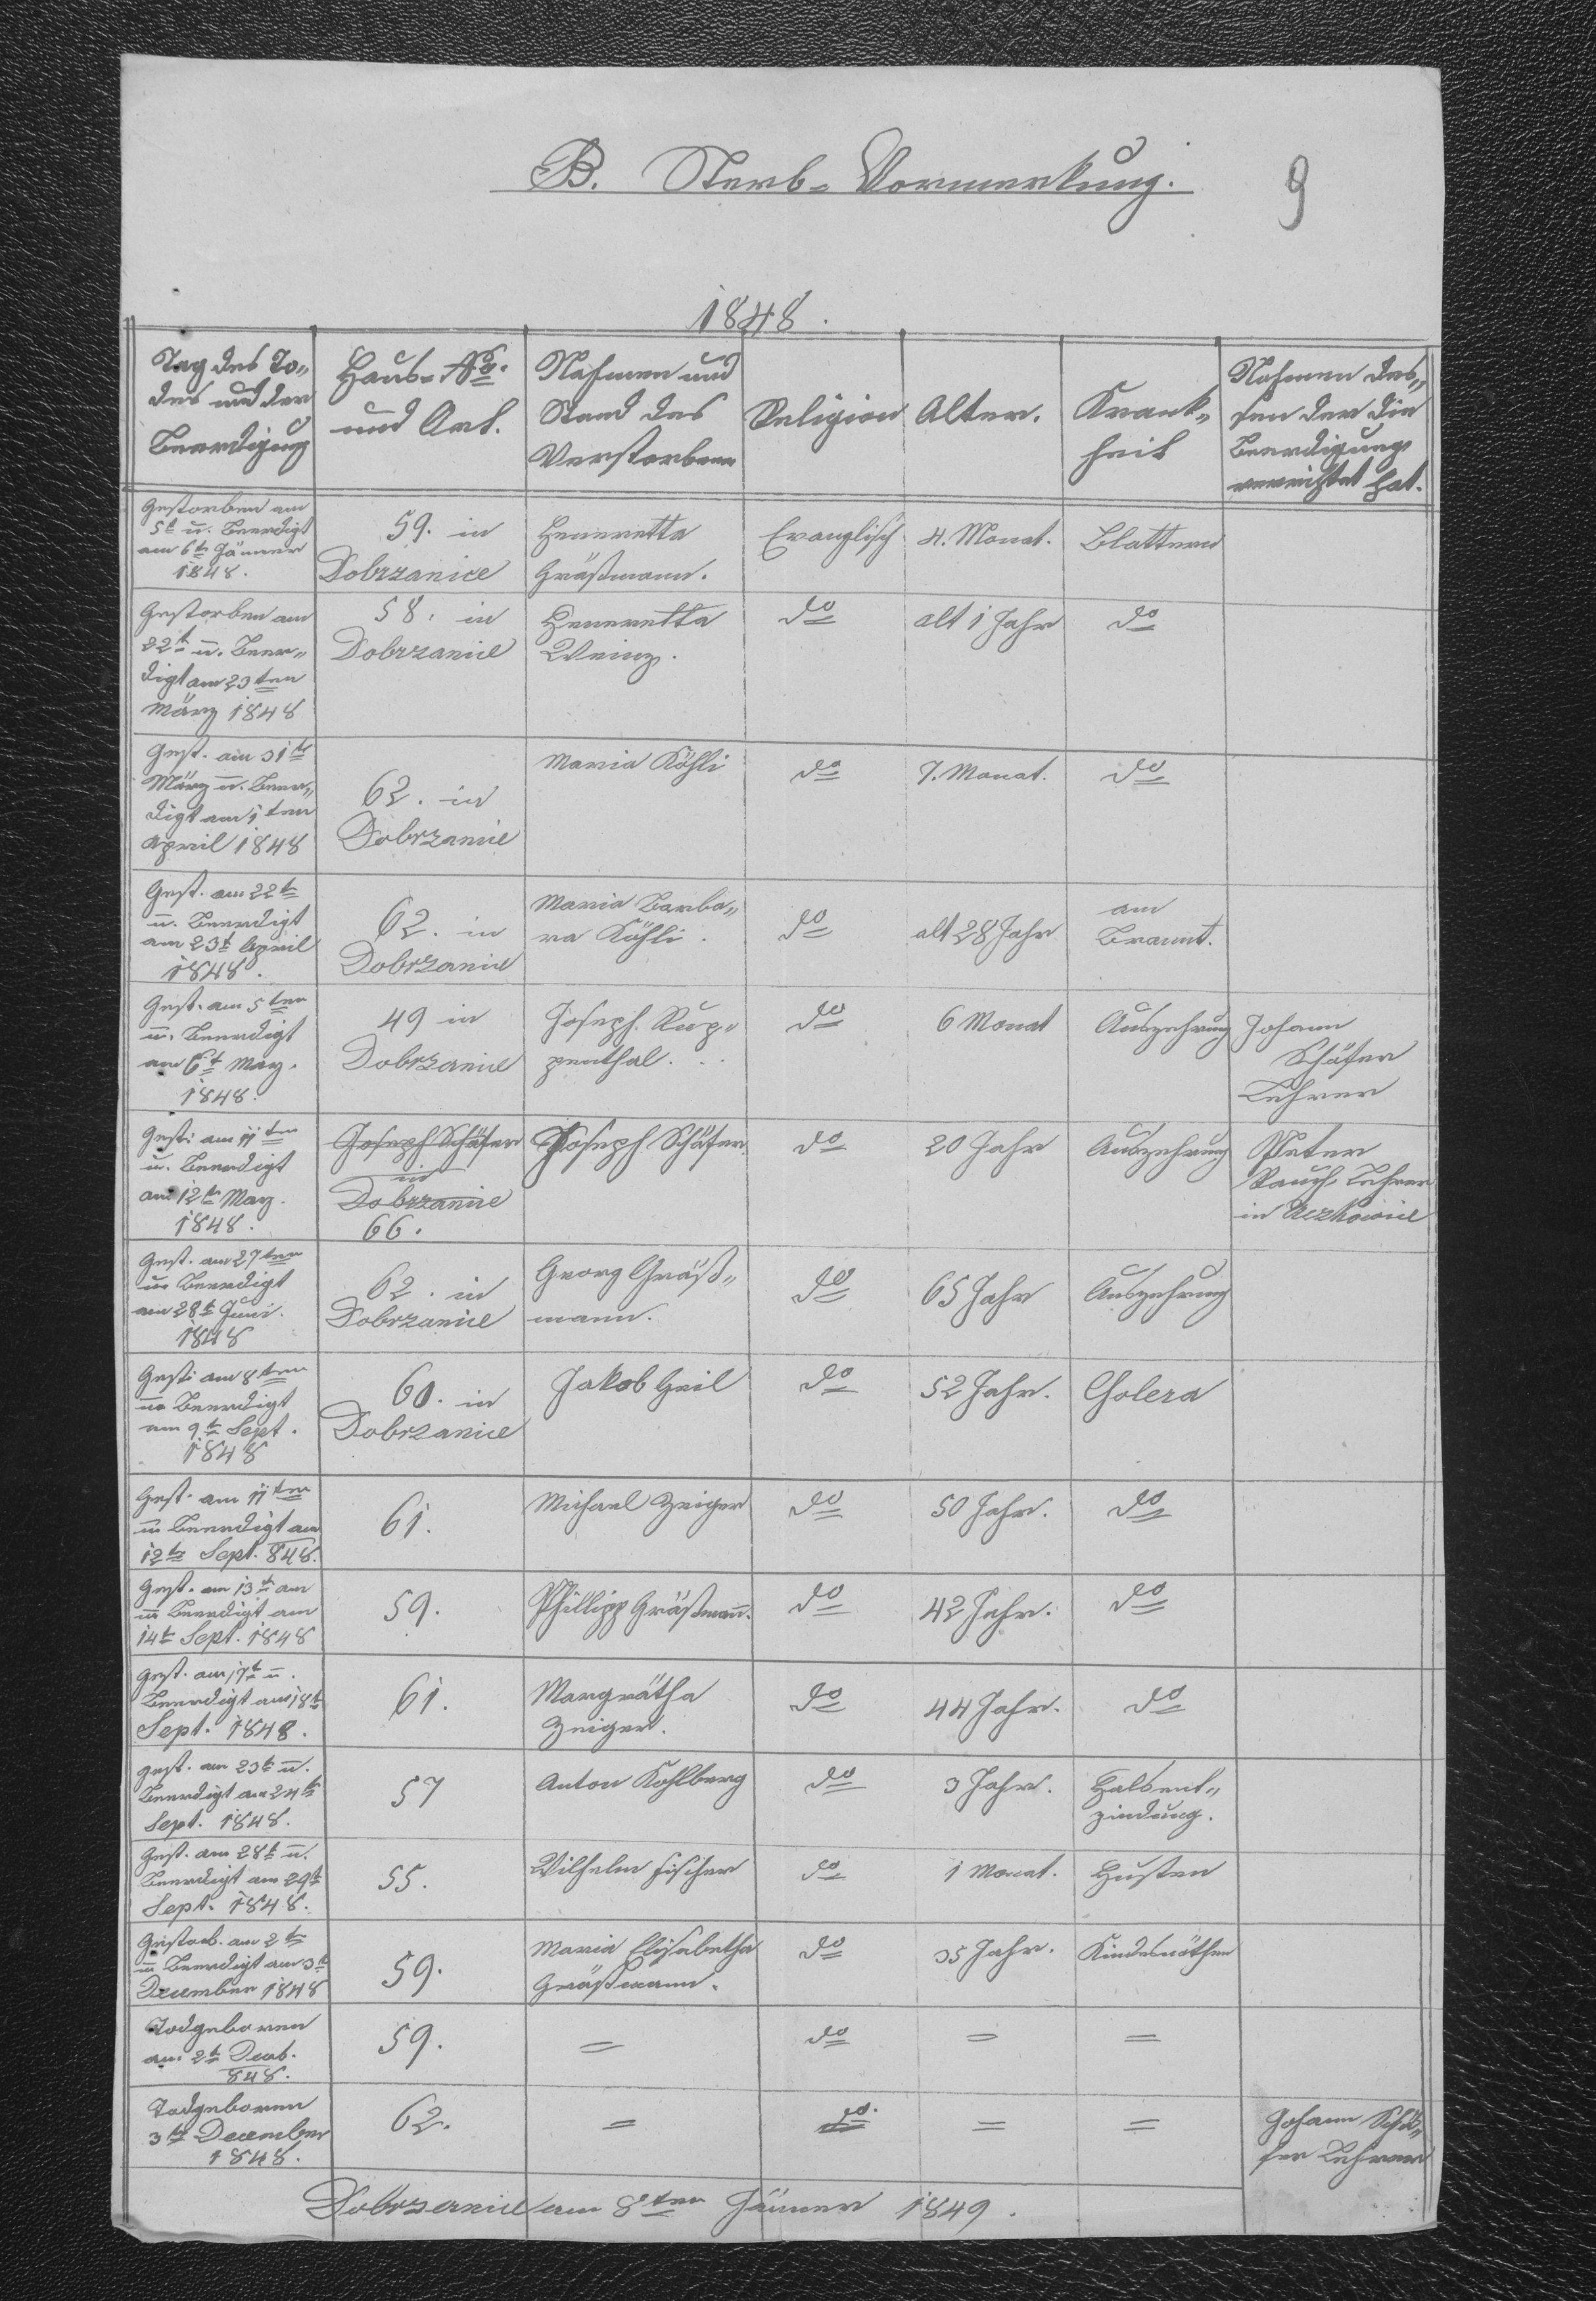 B. Sterb-Vormerkung.
9
1848.
Tag des To„
des und der
Beerdigung
Haus-No.
und Ort.
Nahmen und
Stand des
Verstorbenen
Religion
Alter.
Krank„
heit
Nahmen des„
sen der die
Beerdigung
verrichtet hat.
Gestorben am
5t u. Beerdigt
am 6ten Jänner
1848.
59. in
Dobrzanice
Heneretta
Gräßmann.
Evanglisch
4. Monat.
Blattern
Gestorben am
22t u. Beer„
digt am 23ten
März 1848
58. in
Dobrzanice
Heneretta
Weinz.
do
alt 1 Jahr
do
Gest. am 31t
März u. Beer„
digt am 1ten
April 1848
62. in
Dobrzanice
Maria Köhli
do
7. Monat.
do
Gest. am 22t
u. Beerdigt
am 23t April
1848.
62. in
Dobrzanice
Maria Barba„
ra Köhli.
do
alt 28 Jahr
am
Brannt.
Gest. am 5ten
u. Beerdigt
am 6t May.
1848.
49 in
Dobrzanice
Joseph Rup„
penthal.
do
6 Monat
Auszehrung
Johann
Schäfer
Lehrer
Gest: am 11ten
u. Beerdigt
am 12t May.
1848.
Joseph Schäfer
in
Dobrzanice
66.
Joseph Schäfer.
do
20 Jahr
Auszehrung
Peter
Rauch Lehrer
in
Gest. am 27ten
u. Beerdigt
am 28t Juni.
1848
62. in
Dobrzanice
Georg Gräß„
mann.
do
65 Jahr
Auszehrung
Gest: am 8ten
u. Beerdigt
am 9t Sept.
1848
60. in
Dobrzanice
Jakob Heil
do
52 Jahr.
Colera
Gest. am 11ten
u. Beerdigt am
12te Sept. 848.
61.
Michael Zeiger
do
50 Jahr.
do
Gest. am 13t am
u. Beerdigt am
14t Sept. 1848
59.
Phillipp Gräßmann.
do
42 Jahr.
do
Gest. am 17t u.
Beerdigt am 18t
Sept. 1848.
61.
Margrätha
Zeiger.
do
44 Jahr.
do
gest. am 23t u.
Beerdigt am 24t
Sept. 1848.
57
Anton Kohlberg
do
3 Jahr.
Halsent„
zindung.
Gest. am 28t u.
Beerdigt am 29t
Sept. 1848.
55.
Wilhelm Fischer
do
1 Monat.
Husten
Gestorb. am 2te
u. Beerdigt am 3t
December 1848
59.
Maria Elisabetha
Gräßmann.
do
35 Jahr.
Kindesnöthen
Todgeboren
am 2t Decb.
848.
59.
=
do
=
=
Todgeboren
3te December
1848.
62.
=
do.
=
=
Johann Schä„
fer Lehrer
Dobrzanice am 8ten Jänner 1849.